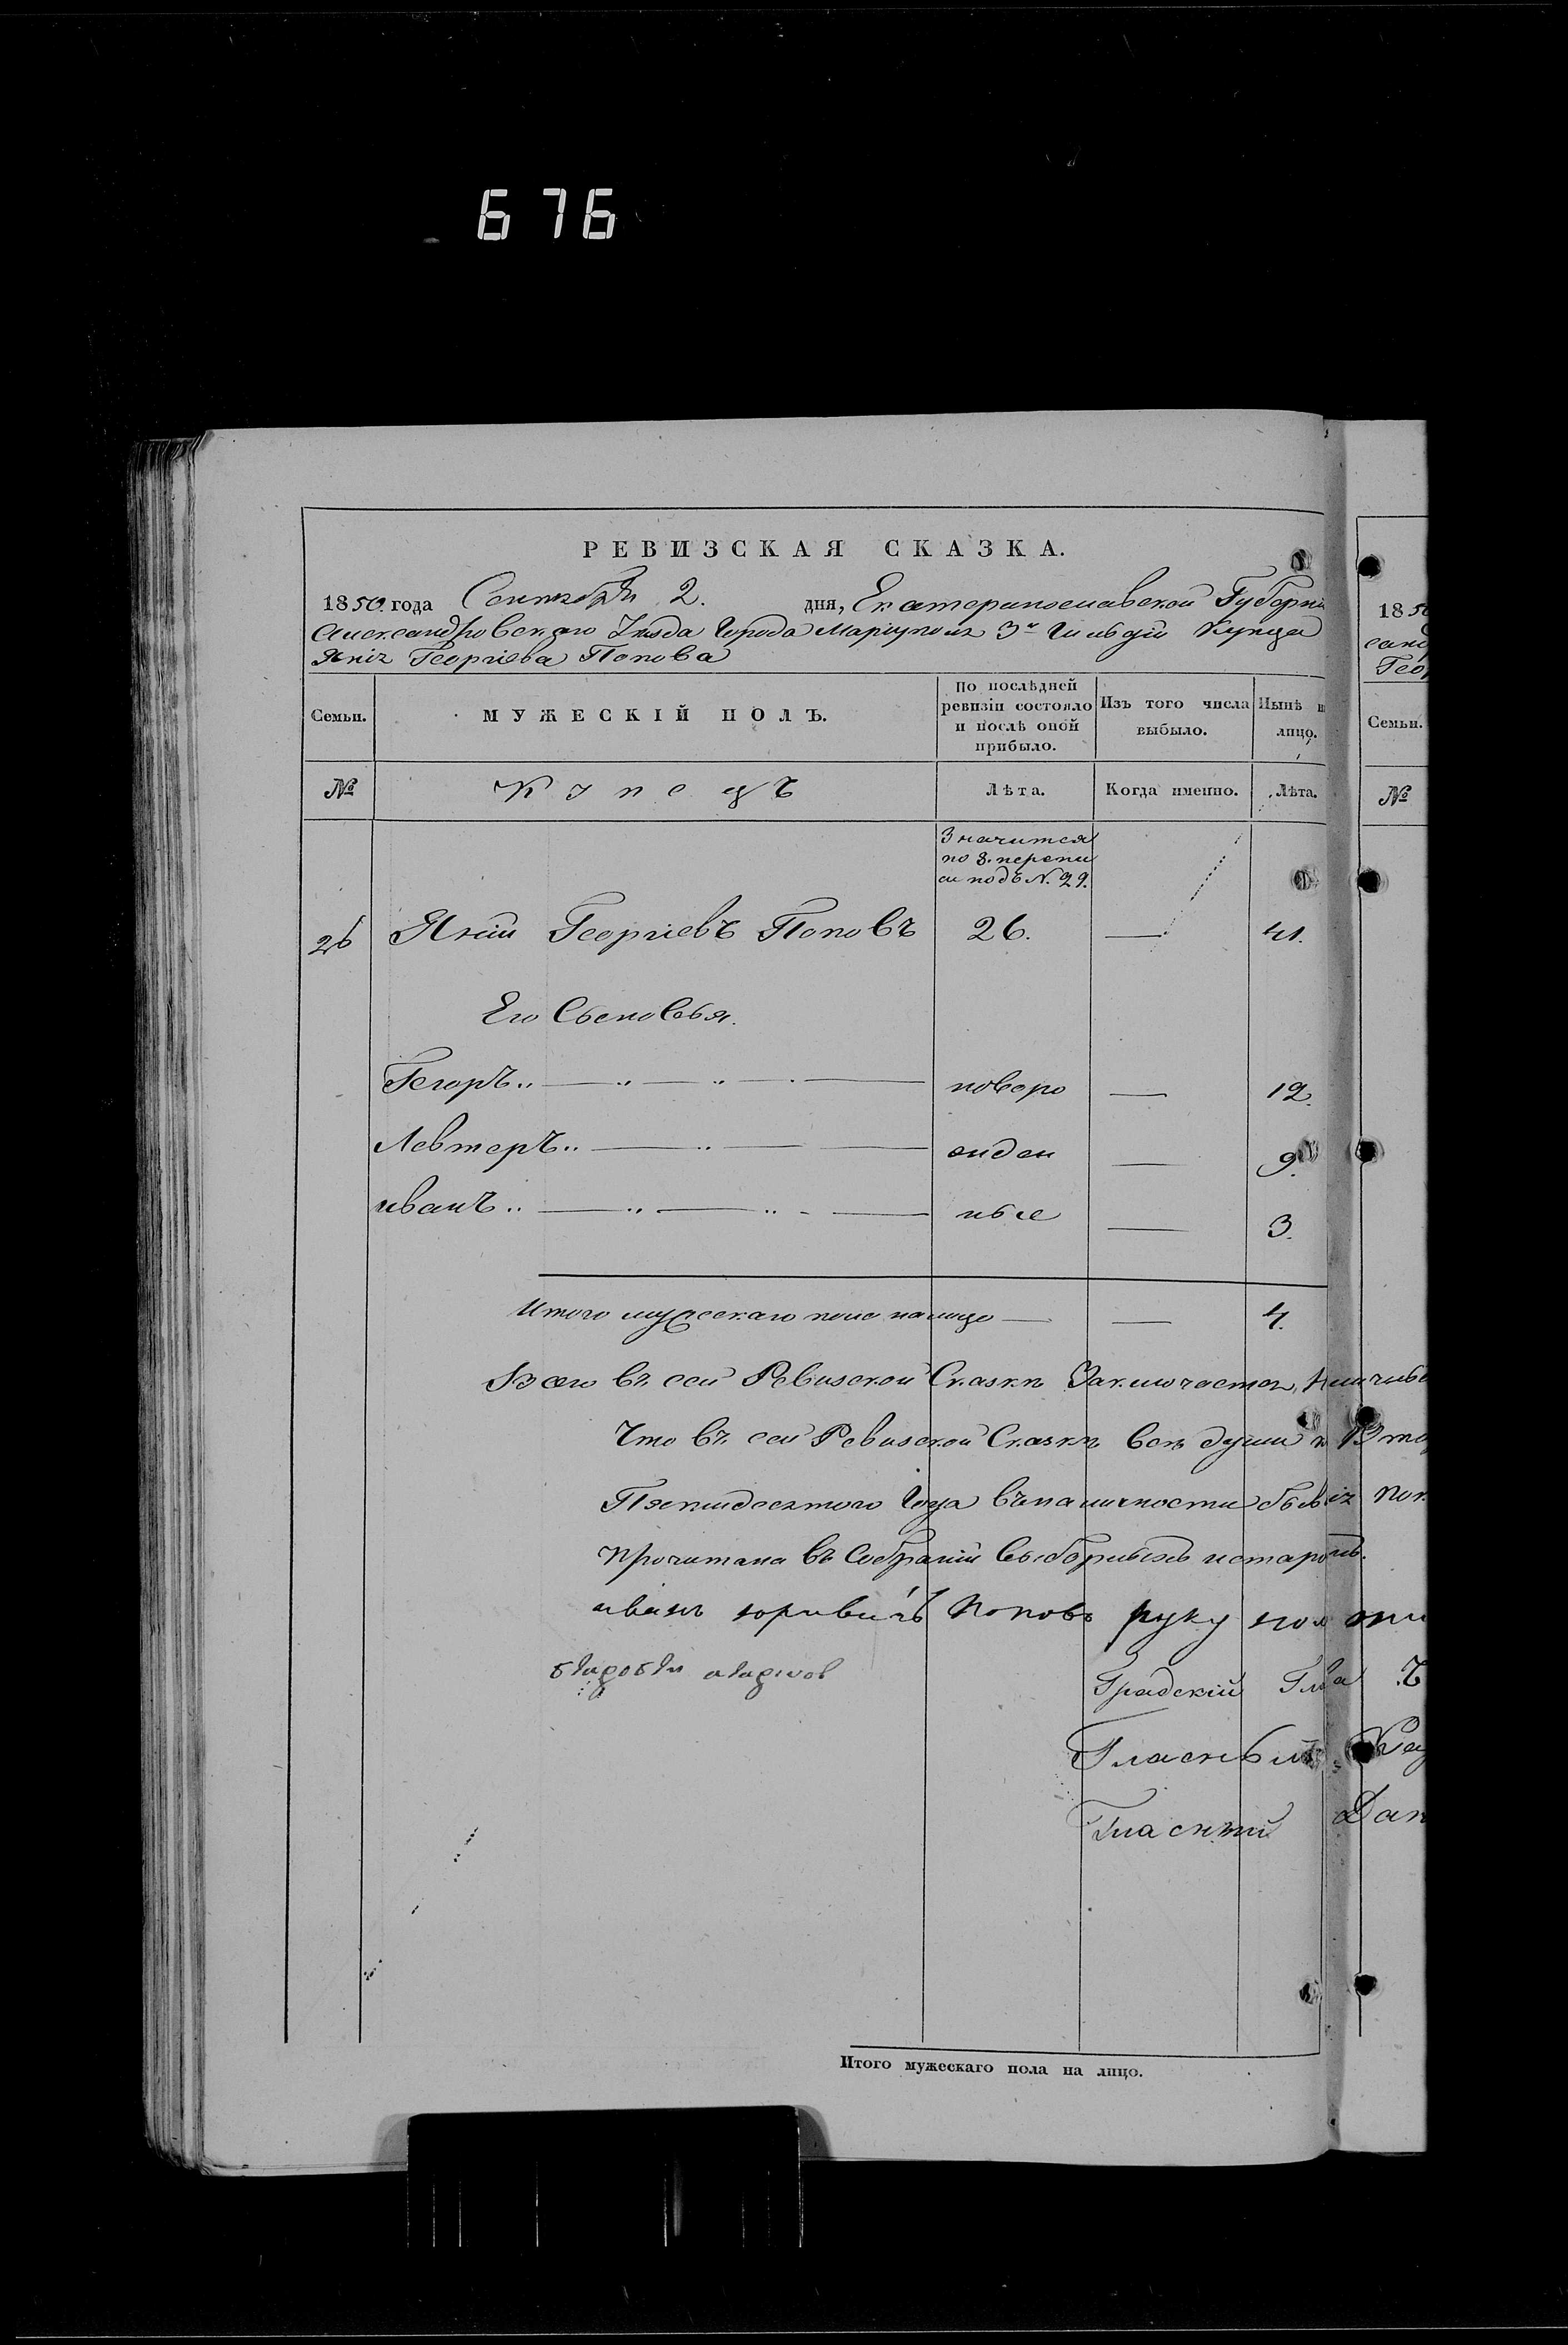 676
РЕВИЗСКАЯ СКАЗКА.
1850 года Сентября 2. дня, Екатеринославской Губерніи
Александровскаго Уѣзда Города Маріуполя 3й Гильдіи Купца
Яніи Георгіева Попова
Семьи.
МУЖЕСКІЙ ПОЛЪ.
По послѣдней ревизіи состояло и послѣ оной прибыло.
Изъ того числа выбыло.
Нынѣ н лицо.
№
Купецъ
Лѣта.
Когда именно.
Лѣта.
Значится
по 8. перепи
си подъ N. 29.
26 Яній Георгіевъ Поповъ 26. — 41.
Его Сыновья.
Гегоръ — новоро — 12.
Левтеръ — жден — 9.
иванъ — ные — 3.
Итого мужескаго пола налицо — — 4.
Всего въ сей Ревизской Сказкѣ Заключается
Что въ сей Ревизской Сказкѣ всѣ души
Пятидесятого Года въ наличности
прочитана въ Собраніи выборныхъ
иванъ юривичъ Поповъ руку
Градскій
Гласный
Гласный
Итого мужескаго пола на лицо.
1850
санд
Гео
Семьи.
№